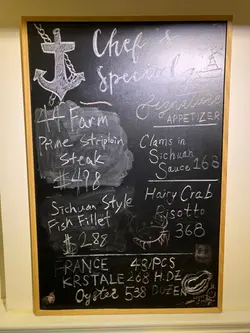 Chef's
Special
Signature
APPETIZER
44 Farm
Prime Striploin
Steak
$498
Clams in
Sichuan
Sauce 168
Sichuan Style
Fish Fillet
$288
Hairy Crab
Risotto
368
FRANCE 48/PCS
KRSTALE 268 H.DZ
Oyster 538 DOZEN